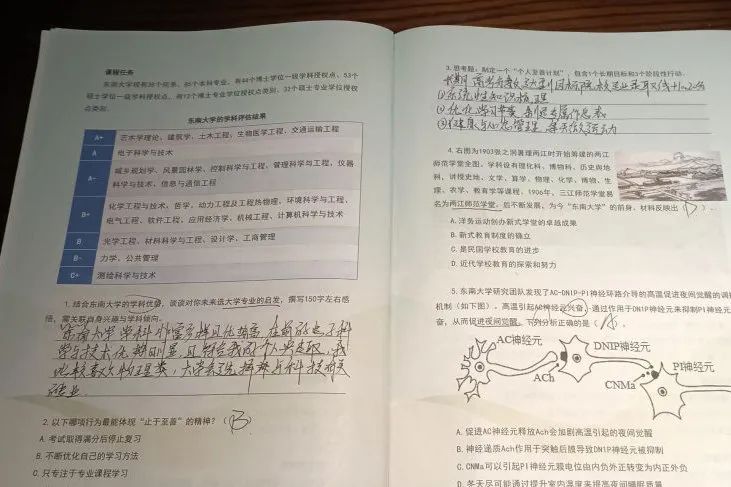 课程任务
东南大学现有36个院系、85个本科专业，有44个博士学位一级学科授权点、53个
硕士学位一级学科授权点，有12个博士专业学位授权点类别、32个硕士专业学位授权
点类别。
东南大学的学科评估结果
A+ 艺术学理论、建筑学、土木工程、生物医学工程、交通运输工程
A 电子科学与技术
A- 城乡规划学、风景园林学、控制科学与工程、管理科学与工程、仪器
科学与技术、信息与通信工程
B+ 化学工程与技术、哲学、动力工程及工程热物理、环境科学与工程、
电气工程、软件工程、应用经济学、机械工程、计算机科学与技术
B 光学工程、材料科学与工程、设计学、工商管理
B- 力学、公共管理
C+ 测绘科学与技术
1. 结合东南大学的学科优势，谈谈你对未来选大学专业的启发，撰写150字左右感
悟，需关联自身兴趣与学科倾向。
东南大学学科
学与技术优势明显，且结合我的个人兴趣，我
比较喜欢物理类，大学
专业.
2. 以下哪项行为最能体现“止于至善”的精神？（B）
A. 考试取得满分后停止复习
B. 不断优化自己的学习方法
C. 只专注于专业课程学习
3. 思考题：制定一个“个人至善计划”，包含1个长期目标和3个阶段性行动。
长期
①系统性知识梳理
②优化学习节奏
③健康与心态管理，每天
4. 右图为1903张之洞署理两江时开始筹建的两江
师范学堂全图，学科设有理化科、博物科、历史舆地
科，讲授史地、文学、算学、物理、化学、博物、生
理、农学、教育学等课程，1906年，三江师范学堂易
名为两江师范学堂，后不断发展，为今“东南大学”的前身，材料反映出（D）。
A. 洋务运动创办新式学堂的卓越成果
B. 新式教育制度的确立
C. 是民国学校教育的进步
D. 近代学校教育的探索和努力
5. 东南大学研究团队发现了AC-DN1P-PI神经环路介导的高温促进夜间觉醒的调
机制（如下图）。高温引起AC神经元兴奋，通过作用于DN1P神经元来抑制PI神经元
奋，从而促进夜间觉醒。下列分析正确的是（A）。
AC神经元
DN1P神经元
PI神经元
ACh
CNMa
A. 促进AC神经元释放Ach会加剧高温引起的夜间觉醒
B. 神经递质Ach作用于突触后膜导致DN1P神经元被抑制
C. CNMa可以引起PI神经元膜电位由内负外正转变为内正外负
D. 冬天尽可能通过提升室内温度来提高夜间睡眠质量